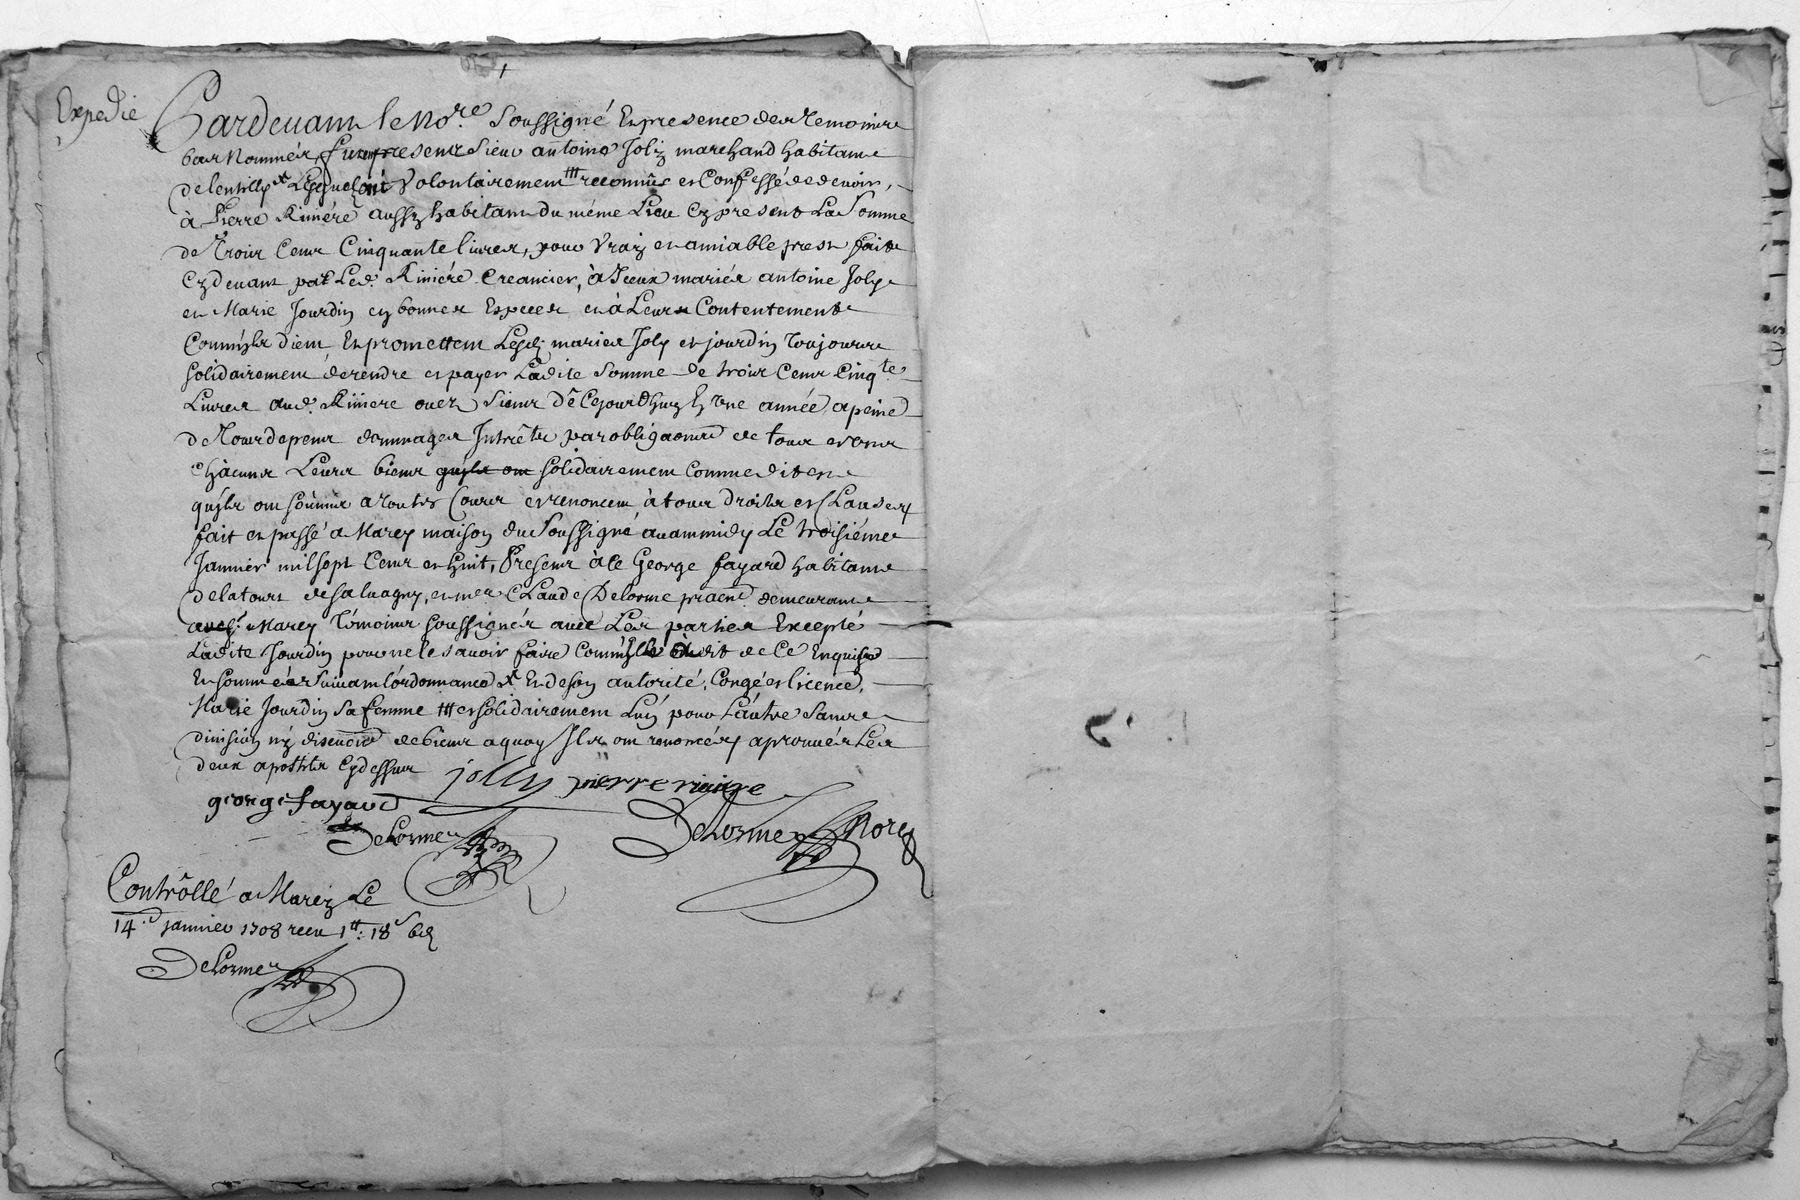 Expedié
Pardevant le no.re Soussigné En presence des Temoins
bas Nommés, fut presents Sieur antoine Joly marchand habitant
de lentilly x Lesquels ont Volontairement ttt reconnus et Confessé de devoir,
à Pierre Riviére aussy habitant du méme Lieu Cy present La Somme
de Trois Cent Cinquante livres, pour Vray et amiable prest fait
Cydevant par Led. Riviére Creancier, à Iceux mariés antoine Joly
et Marie Jourdin en bonnes Especes et à Leurs Contentement
Comm'ils dient Et promettent Lesd. mariés Joly et jourdin Toujours
Solidairement de rendre et payer Ladite Somme de trois Cent Cinq.te
Livres aud. Riviere ou ez Siens dê Cejourdhuy En Une année a peine
de Tous depens dommages Intrêts par obligaond de tous et Uns
Châcuns Leurs biens qu'ils ont Solidairement Comme dit est
qu'ils ont Soûmis a toutes Cours et renoncent à tous droits et Clauses
fait et passé a Marcy maison du Soussigné avant midy Le troisiéme
Janvier mil sept Cent et huit, Presents à Ce George fayard habitant
de la tour de salvagny, et me Claude Delorme praend demeurant
aud. Marcy Témoins Soussignés avec Les parties Excepté
Ladite Jourdin pour ne le savoir faire Comm'elle à dit de Ce Enquise
Et Sommées Suivant l'ordonnance x Et de son autorité, Congé et licence,
Marie Jourdin Sa femme ttt et Solidairement L'un pour L'autre Sans
division n'y discution de biens a quoy Ils ont renoncés aprouvés Les
deux apostils Cydessus
jolly pierre riviere
george fayard
Delorme Delorme Nore
Contrôllé a Marcy Le
14.e janvier 1708 receu 1tt: 18s 6d
Delorme